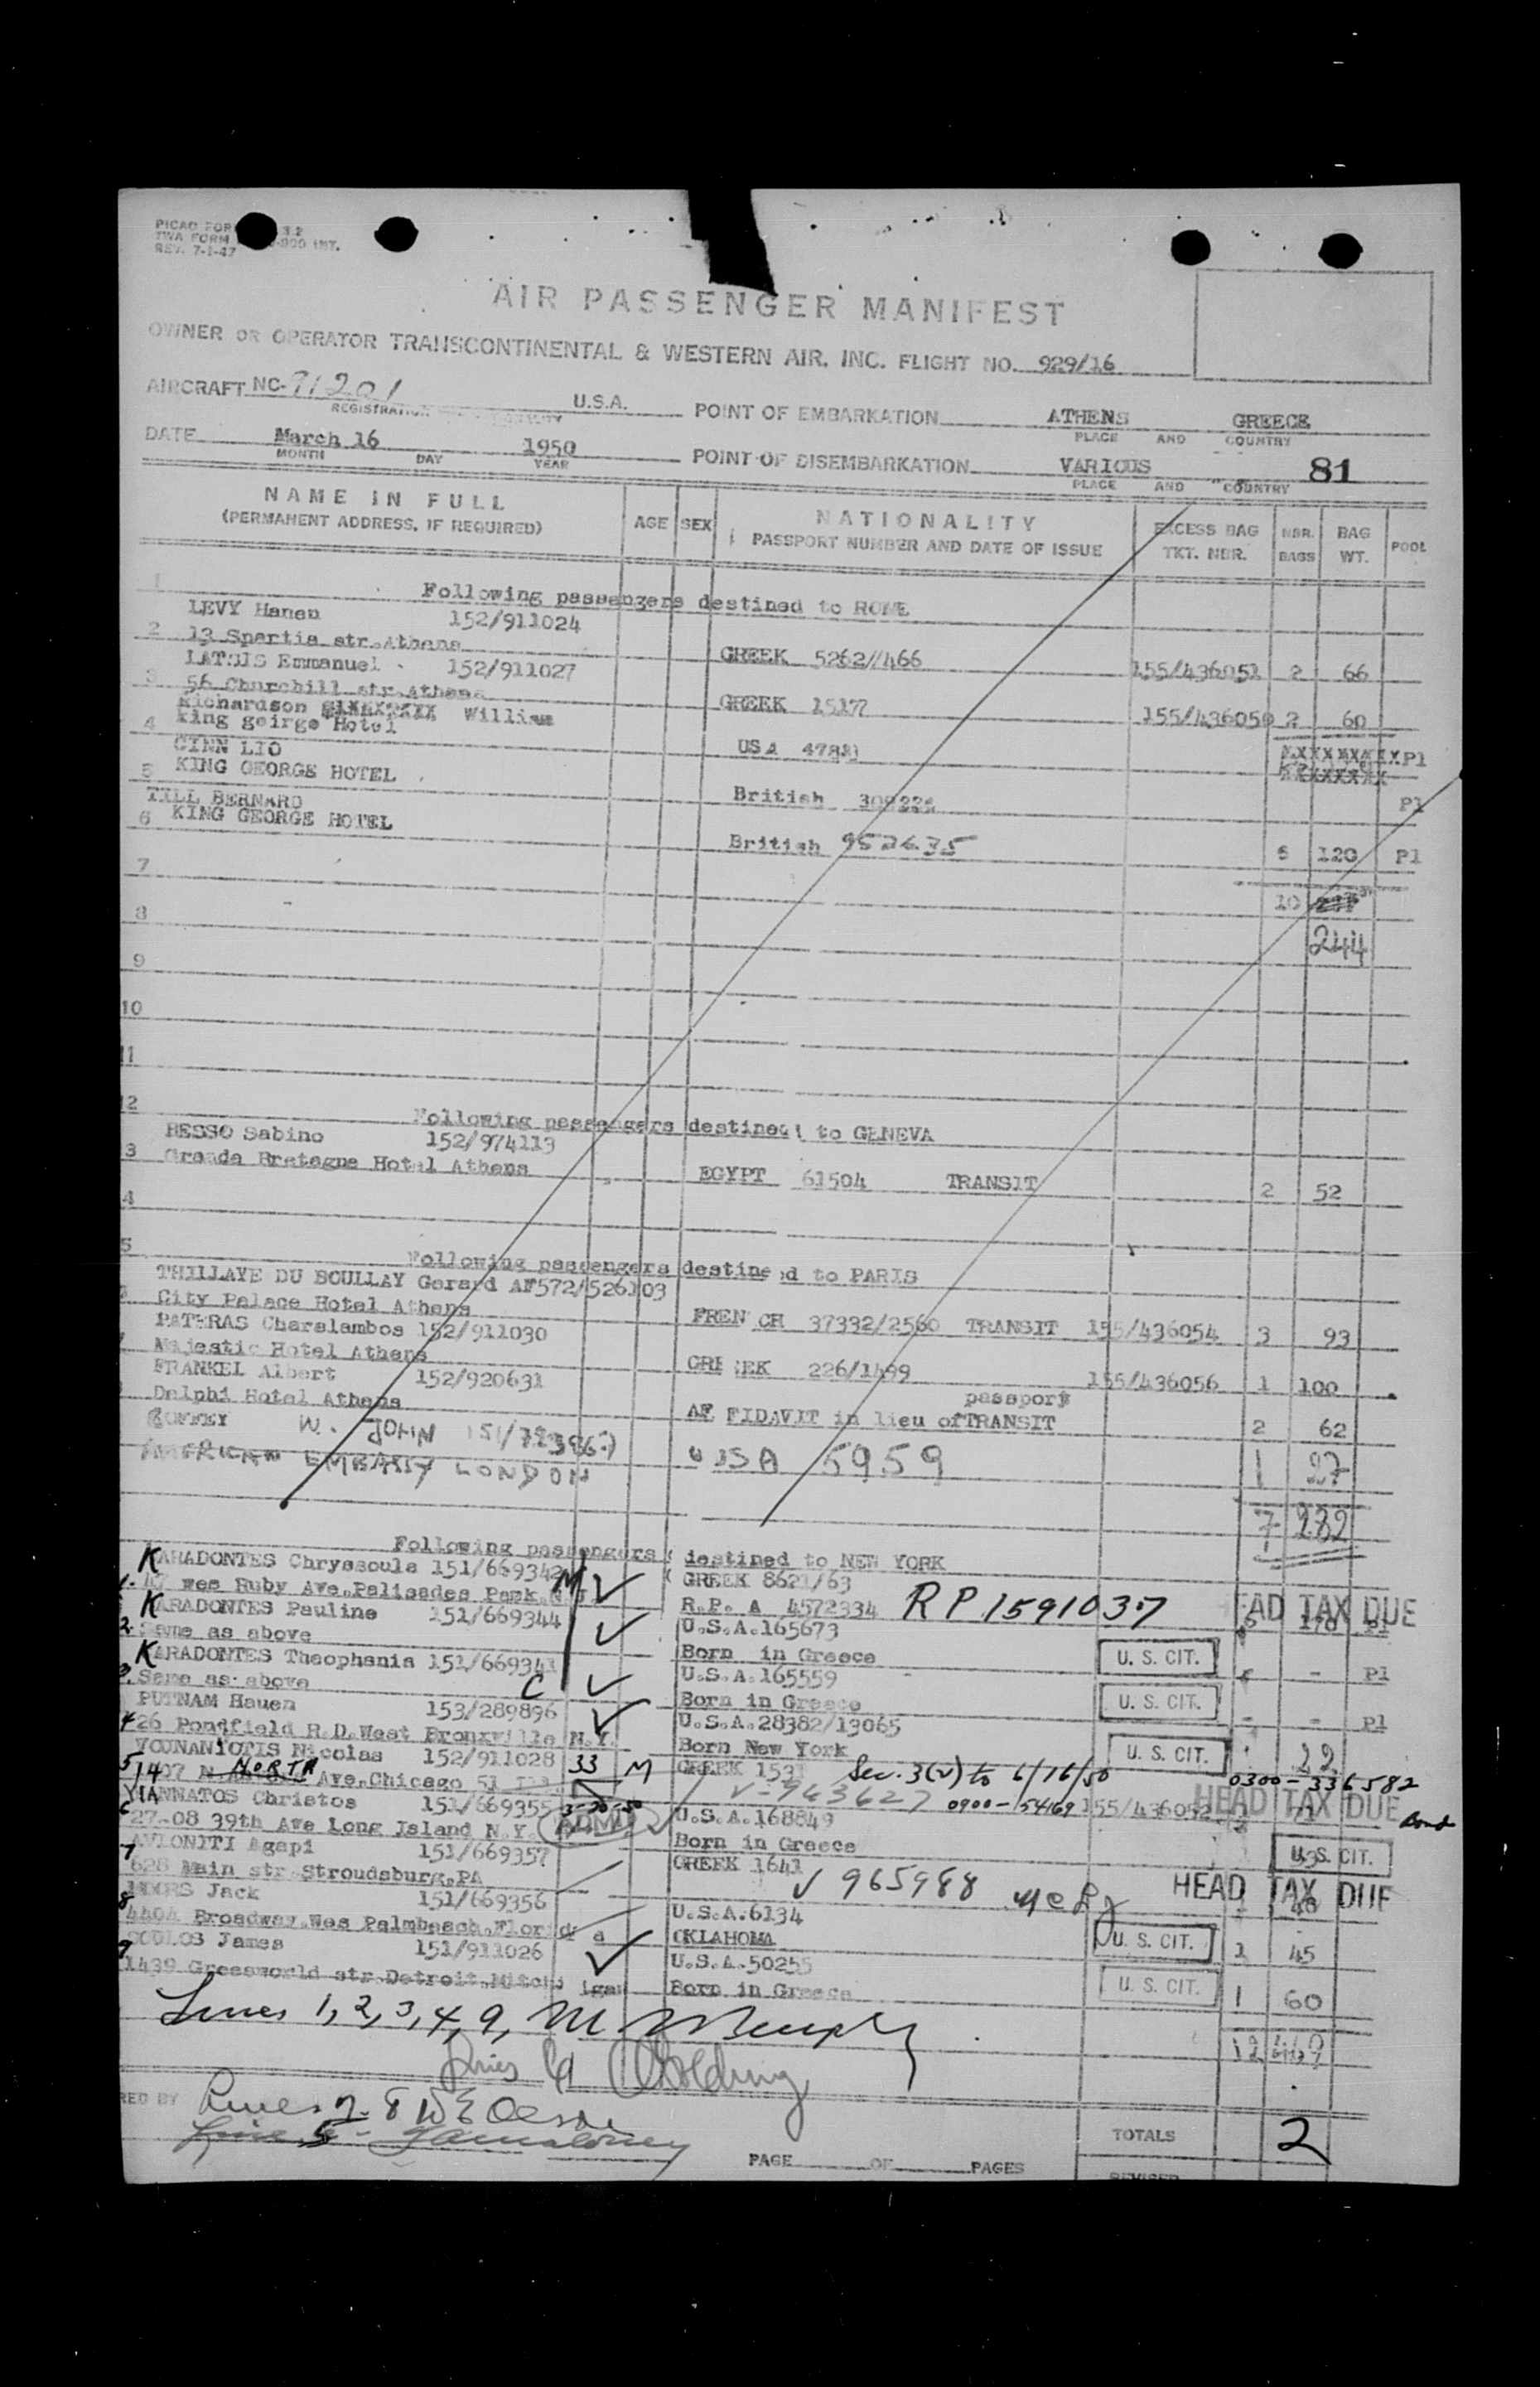 PICAO FOR
TWA FORM -900 INT.
REV. 7-1-47
AIR PASSENGER MANIFEST
OWNER OR OPERATOR TRANSCONTINENTAL & WESTERN AIR. INC. FLIGHT NO. 929/16
AIRCRAFT NC-71201 U.S.A. POINT OF EMBARKATION ATHENS GREECE
PLACE AND COUNTRY
DATE March 16 1950 POINT OF DISEMBARKATION VARIOUS 81
MONTH DAY YEAR PLACE AND COUNTRY
NAME IN FULL AGE SEX NATIONALITY EXCESS BAG NBR. BAG POOL
(PERMANENT ADDRESS, IF REQUIRED) PASSPORT NUMBER AND DATE OF ISSUE TKT. NBR. BAGS WT.
1 Following passengers destined to ROME
LEVY Hanen 152/911024
2 13 Spartia str.Athens GREEK 5262//466 155/436051 2 66
LATSIS Emmanuel 152/911027
3 56 Churchill str.Athens GREEK 15177 155/436050 2 60
Richardson William
4 king geirge Hotel USA Pl
GINN LIO
5 KING GEORGE HOTEL British Pl
TILL BERNARD
6 KING GEORGE HOTEL British 952635 6 120 Pl
7
10
8 244
9
10
11
12 Following passengers destined to GENEVA
BESSO Sabino 152/974113
3 Grande Bretagne Hotel Athens EGYPT 61504 TRANSIT 2 52
4
5 Following passengers destined to PARIS
THILLAYE DU BOULLAY Gerard AF572/526103
City Palace Hotel Athens FRENCH 37332/2560 TRANSIT 155/436054 3 93
PATERAS Charalambos 152/911030
Majestic Hotel Athens GREEK 226/1499 155/436056 1 100
FRANKEL Albert 152/920631 passport
Delphi Hotel Athens AFFIDAVIT in lieu of TRANSIT 2 62
W. JOHN
AMERICAN EMBASSY LONDON USA 5959 1 27
7 282
Following passengers destined to NEW YORK
KARADONTES Chryssoula 151/669342 GREEK 8621/63
1. 47 wes Ruby Ave.Palisades Park N.J. R.P. A 4572334 RP 1591037 HEAD TAX DUE
KARADONTES Pauline 151/669344 U.S.A.165673
2. Same as above Born in Greece U. S. CIT. - Pl
KARADONTES Theophania 151/669341 U.S.A.165559
3. Same as above Born in Greece U. S. CIT. - - Pl
PUTNAM Hauen 153/289896 U.S.A.28382/13065
4 26 Pondfield R.D.West Bronxville N.Y. Born New York U. S. CIT. 22
YOUNANIOTIS Nicolas 152/911028 33 M GREEK 153 Sec. 3(2) to 6/16/50 0300-336582
5 1407 NORTH Ave.Chicago 51 V-963627 0900-54169 155/436052 HEAD TAX DUE
YIANNATOS Christos 151/669355 3-20-50 U.S.A.168849
6 27-08 39th Ave Long Island N.Y. ADM Born in Greece U.S. CIT.
AVLONITI Agapi 151/669357 GREEK 1641
7 628 Main str.Stroudsburg,PA V 965988 HEAD TAX DUE
Jack 151/669356 U.S.A.6134
8 4404 Broadway.Wes Palmbeach.Florida OKLAHOMA U. S. CIT. 1 45
James 151/911026 U.S.A.50255
9 1439 Greesworld str.Detroit,Mitchigan Born in Greece U. S. CIT. 1 60
Lines 1, 2, 3, 4, 9, M Murphy
12 469
RED BY Lines 7-8 W E Olson
Line 5 -
TOTALS 2
PAGE OF PAGES
REVISED